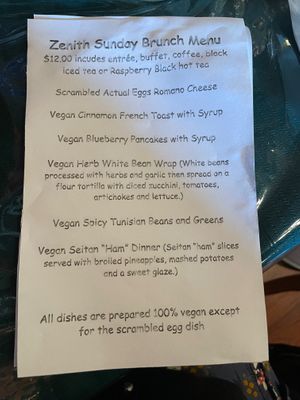 Zenith Sunday Brunch Menu
$12.00 incudes entrée, buffet, coffee, black
iced tea or Raspberry Black hot tea
Scrambled Actual Eggs Romano Cheese
Vegan Cinnamon French Toast with Syrup
Vegan Blueberry Pancakes with Syrup
Vegan Herb White Bean Wrap (White beans
processed with herbs and garlic then spread on a
flour tortilla with diced zucchini, tomatoes,
artichokes and lettuce.)
Vegan Spicy Tunisian Beans and Greens
Vegan Seitan "Ham" Dinner (Seitan "ham" slices
served with broiled pineapples, mashed potatoes
and a sweet glaze.)
All dishes are prepared 100% vegan except
for the scrambled egg dish